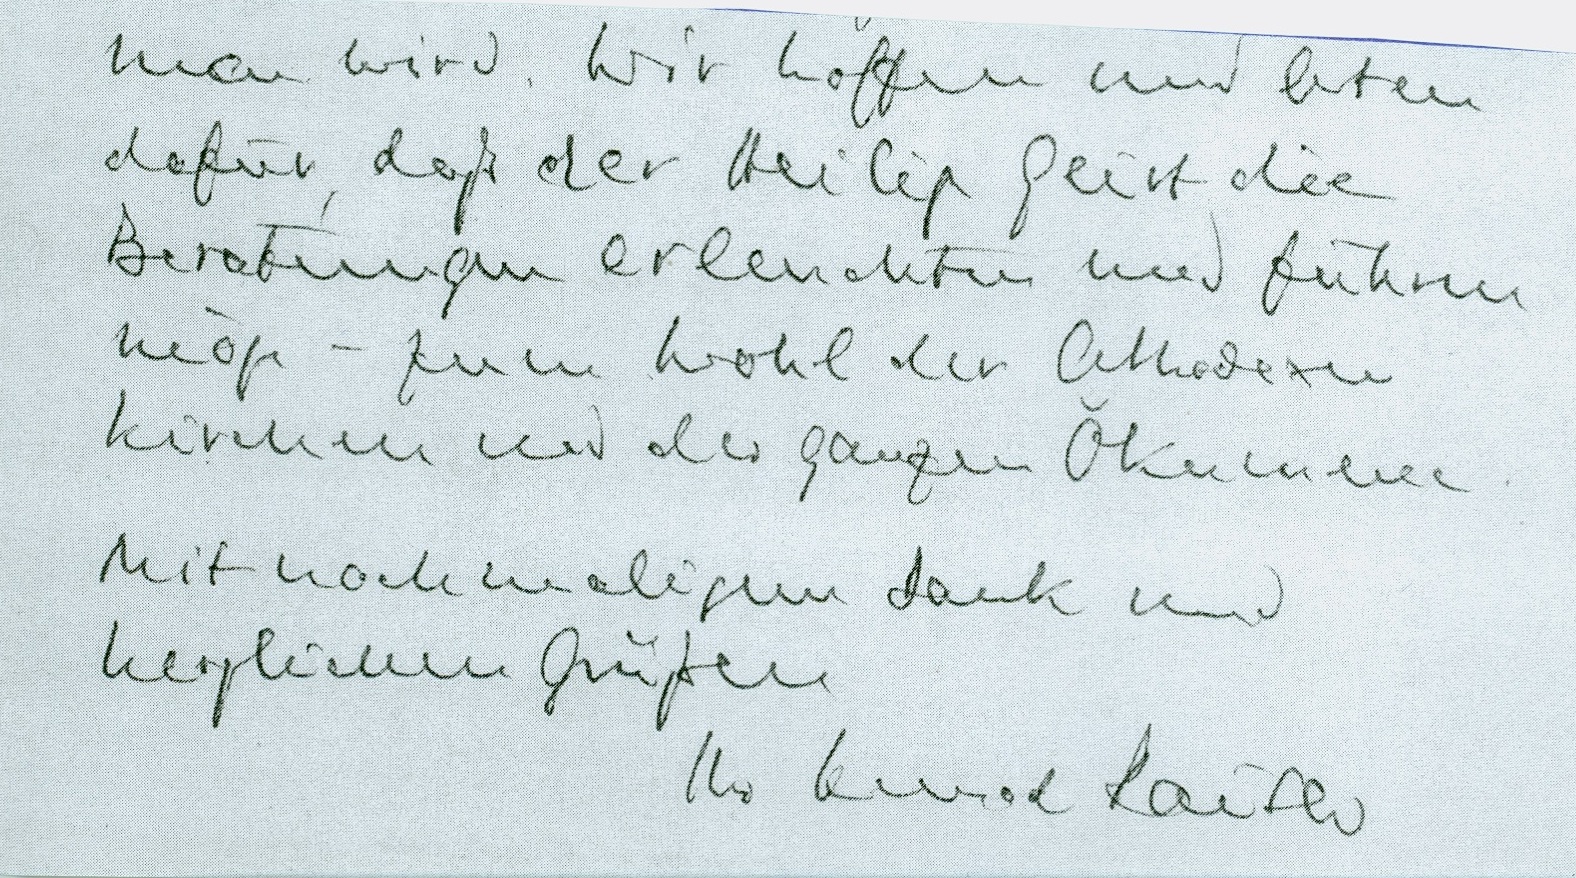 man wird. Wir hoffen und beten
dafür, daß der Heilige Geist die
Beratungen erleuchten und führen
möge - zum Wohl der Orthodoxen
Kirchen und der ganzen Ökumene.
Mit nochmaligem Dank und
herzlichen Grüßen
Ihr Konrad Raiser